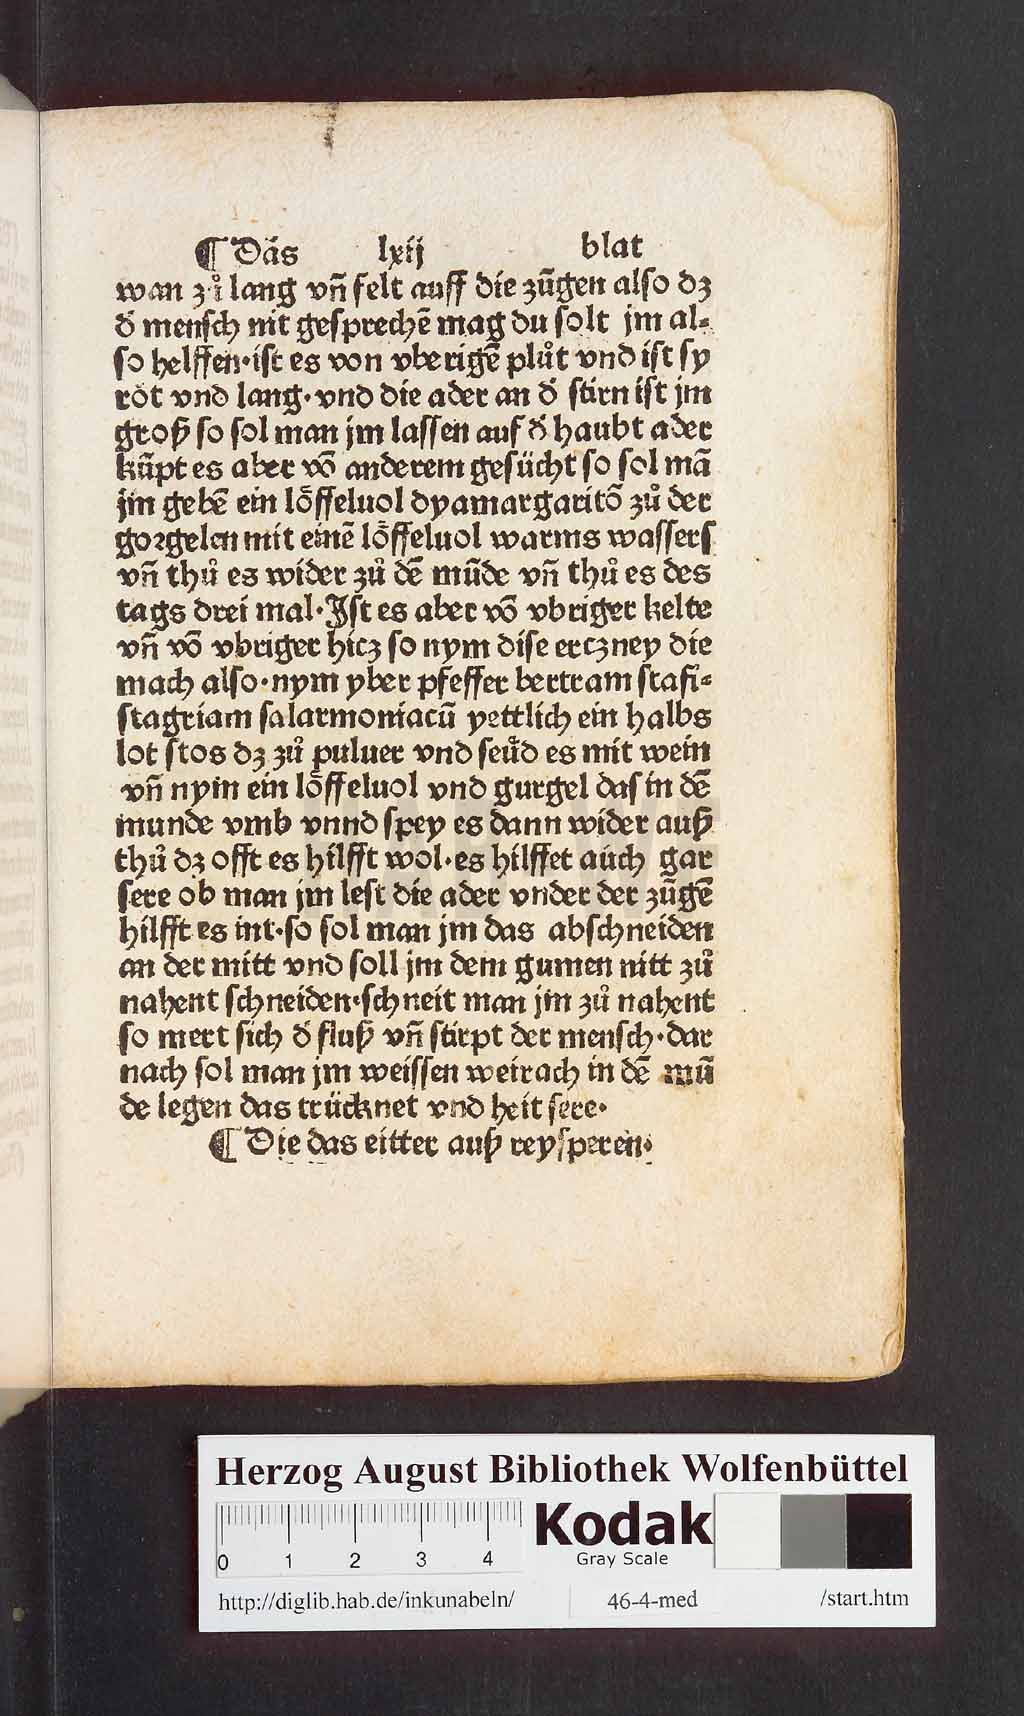 ¶ Das lxij blat
wan zů lang vñ felt auff die zūgen also dz
d̕ mensch nit gesprechē mag du solt jm al⸗
so helffen·ist es von vberigē plůt vnd ist sy
rot vnd lang·vnd die ader an d̕ stirn ist jm
groß so sol man jm lassen auf d̕ haubt ader
kūpt es aber vō anderem gesücht so sol mā
jm gebē ein löffeluol dyamargaritō zů der
gorgelen mit einē löffeluol warms wassers
vñ thů es wider zů dē mūde vñ thů es des
tags drei mal·Ist es aber vō vbriger kelte
vñ vō vbriger hicz so nym dise erczney die
mach also·nym yber pfeffer bertram stafi⸗
stagriam salarmoniacū yettlich ein halbs
lot stos dz zů puluer vnd seüd es mit wein
vñ nym ein löffeluol vnd gurgel das in dē
munde vmb vnnd spey es dann wider auß
thů dz offt es hilfft wol·es hilffet auch gar
sere ob man jm lest die ader vnder der zūgē
hilfft es int·so sol man jm das abschneiden
an der mitt vnd soll jm dem gumen nitt zů
nahent schneiden·schneit man jm zů nahent
so mert sich d̕ fluß vñ stirpt der mensch·dar
nach sol man jm weissen weirach in dē mū
de legen das trücknet vnd heit sere·
¶ Die das eitter auß reysperen·
HAB WF
Herzog August Bibliothek Wolfenbüttel
0 1 2 3 4
Kodak
Gray Scale
http://diglib.hab.de/inkunabeln/ 46-4-med /start.htm